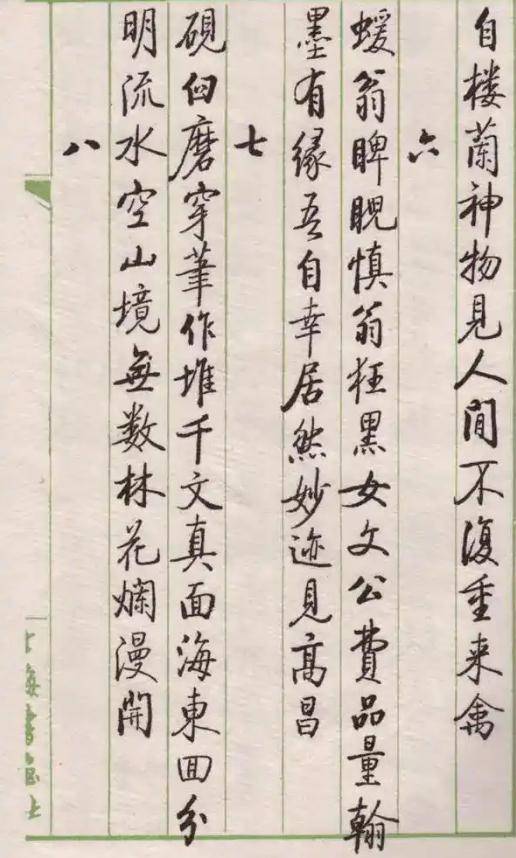 自楼蘭神物見人間不復重来禽
六
蝯翁睥睨慎翁狂黑女文公費品量翰
墨有緣吾自幸居然妙迹見高昌
七
硯臼磨穿筆作堆千文真面海東囬分
明流水空山境無数林花爛漫開
八